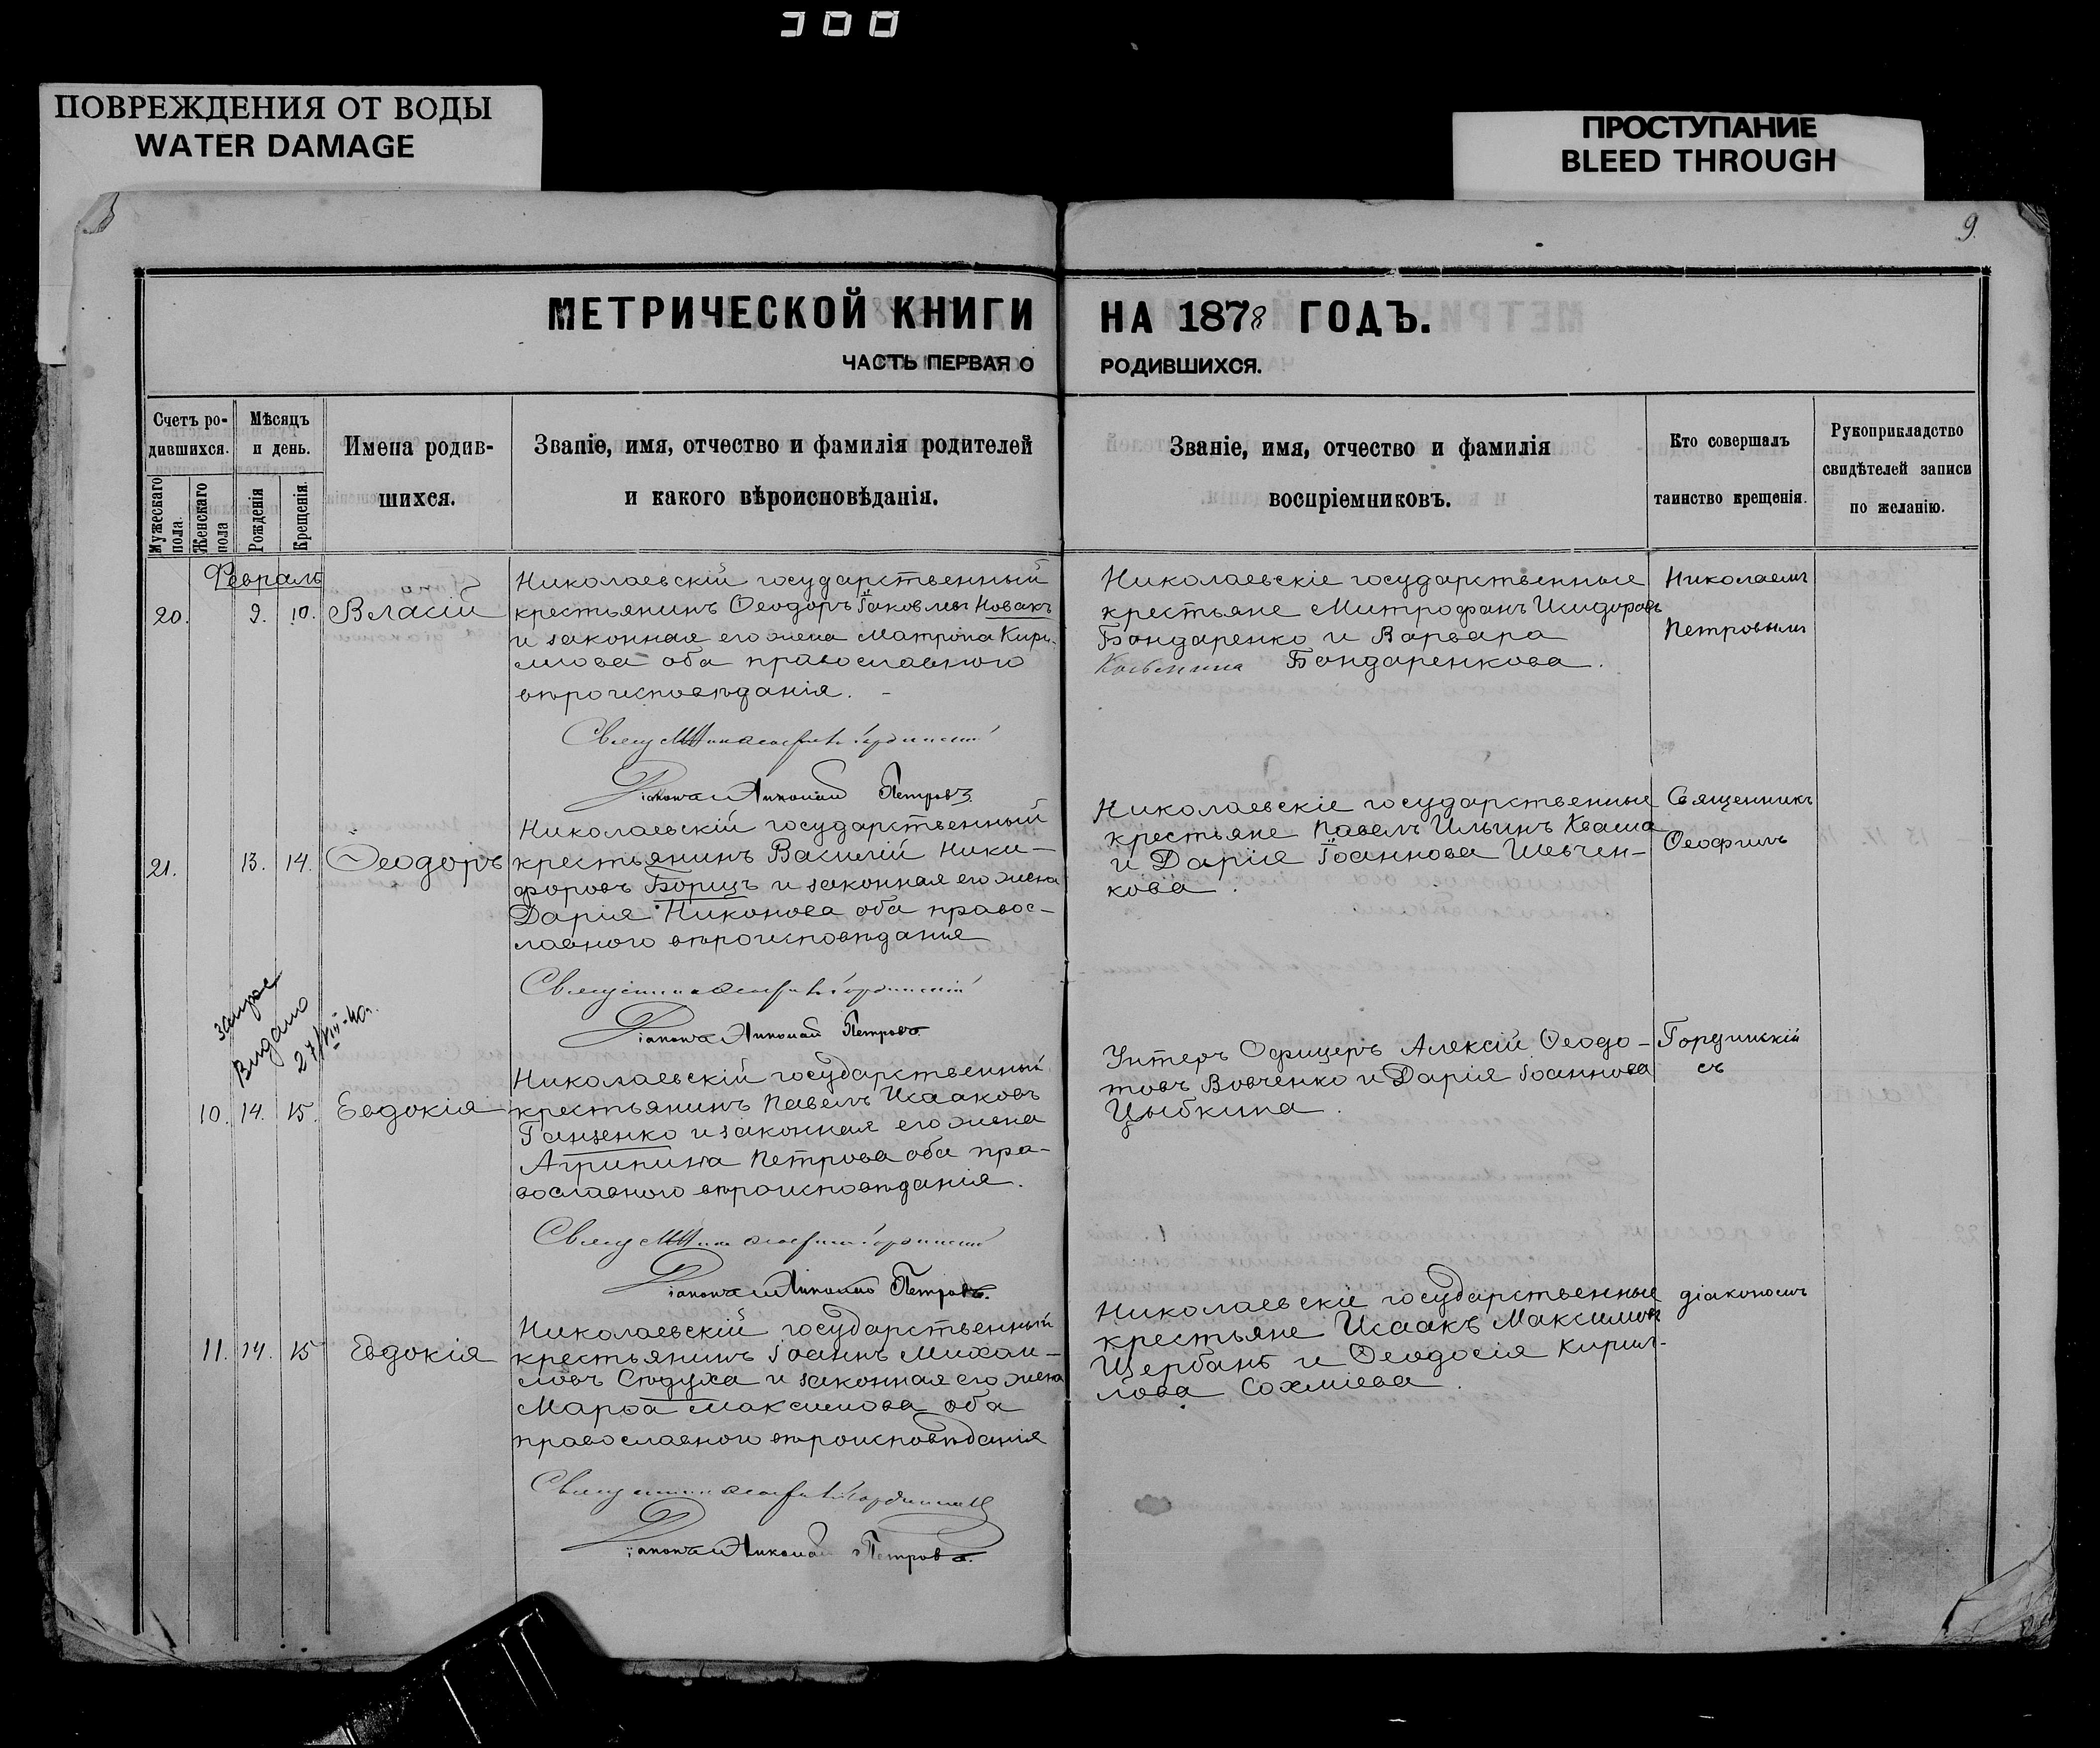 300
ПОВРЕЖДЕНИЯ ОТ ВОДЫ
WATER DAMAGE
ПРОСТУПАНИЕ
BLEED THROUGH
9.
МЕТРИЧЕСКОЙ КНИГИ НА 1878 ГОДЪ.
ЧАСТЬ ПЕРВАЯ О РОДИВШИХСЯ.
Счетъ ро-
дившихся.
Мужескаго пола.
Женскаго пола
Мѣсяцъ
и день.
Рожденія
Крещенія.
Имена родив-
шихся.
Званіе, имя, отчество и фамилія родителей
и какого вѣроисповѣданія.
Званіе, имя, отчество и фамилія
воспріемниковъ.
Кто совершалъ
таинство крещенія.
Рукоприкладство
свидѣтелей записи
по желанію.
Февраль
20. 9. 10. Власій
Николаевскій государственный
крестьянинъ Ѳеодоръ Іаковлевъ Новакъ
и законная его жена Матрона Кири-
лова оба православнаго
вѣроисповѣданія.
Діаконъ Николай Петровъ
Николаевскіе государственные
крестьяне Митрофанъ Исидоровъ
Бондаренко и Варвара
Косьмина Бондаренкова.
Николаемъ
Петровымъ
21. 13. 14. Ѳеодоръ
Николаевскій государственный
крестьянинъ Василій Ники-
форовъ Борщъ и законная его жена
Дарія Никонова оба правос-
лавного вѣроисповѣданія
Діаконъ Николай Петровъ
Николаевскіе государственные
крестьяне Павелъ Ильинъ Кваша
и Дарія Іоаннова Шевчен-
кова.
Священникъ
Ѳеофилъ
Видано
27/VIII-40г.
10. 14. 15. Евдокія
Николаевскій государственный
крестьянинъ Павелъ Исааковъ
Ганзенко и законная его жена
Агрипина Петрова оба пра-
вославного вѣроисповѣданія.
Діаконъ Николай Петровъ.
Унтеръ Офицеръ Алексій Ѳеодо-
товъ Вовченко и Дарія Іоаннова
Цыбкина.
Гординскій
съ
11. 14. 15 Евдокія
Николаевскій государственный
крестьянинъ Іоаннъ Михаи-
ловъ Сѣдуха и законная его жена
Марѳа Максимова оба
православного вѣроисповѣданія
Діаконъ Николай Петровъ.
Николаевскіе государственные
крестьяне Исаакъ Максимовъ
Щербань и Ѳеодосія Кирил-
лова Сохміева.
діакономъ